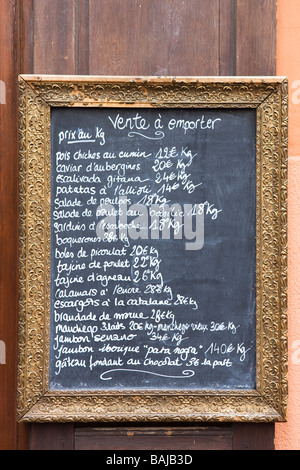 Vente à emporter
prix au kg
pois chiches au cumin 12€ Kg
caviar d'aubergines 20€ Kg
escalivada gitana 24€ Kg
patatas à l'allioli 14€ Kg
salade de poulpes 18 Kg
salade de poulet au basilic 18€ Kg
sardines à l'escabeche 18€ Kg
boquerones 38€ Kg
boles de picoulat 20€ Kg
tajine de poulet 22€ Kg
tajine d'agneau 26€ Kg
calamars à l'encre 28€ Kg
escargots à la catalane 28€ Kg
brandade de morue 28€ Kg
manchego 3 laits 20€ Kg - manchego vieux 30€ Kg
jambon serrano 34€ Kg
jambon iberique "pata negra" 140€ Kg
gâteau fondant au chocolat 5€ la part
alamy
Image ID: BAJB3D
www.alamy.com